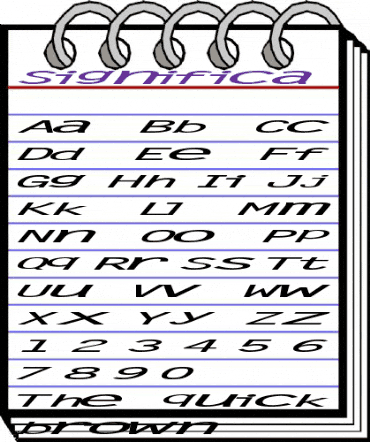 Significa
Aa Bb Cc
Dd Ee Ff
Gg Hh Ii Jj
Kk Ll Mm
Nn Oo Pp
Qq Rr Ss Tt
Uu Vv Ww
Xx Yy Zz
1 2 3 4 5 6
7 8 9 0
The quick
brown